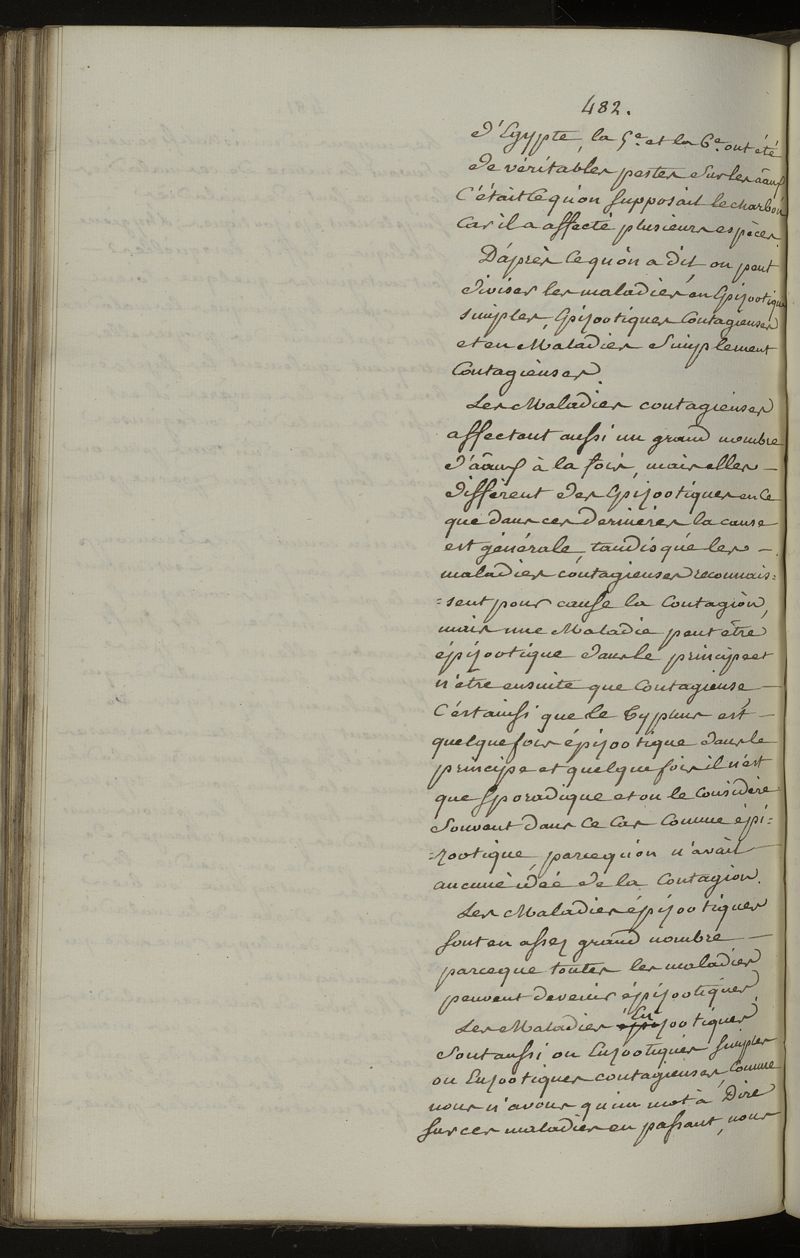 482.
d'Egypte, la 5.e et la 6.e ont été
de véritables pestes sur les aâux
C'était ce qu'on supposait le charbon
car il a affecté plusieurs espèces.
D'après ce qu'on a dit, on peut
diviser les maladies en Epizootiques
simples, Epizootiques Contagieuses
et en Maladies simplement
Contagieuses.
Les Maladies contagieuses
affectent aussi un grand nombre
d'aâux à la fois, mais elles —
diffèrent des Epizootiques en ce
que dans ces dernières la cause
est générale, tandis que les —
maladies contagieuses reconnais=
=sent pour cause la Contagion,
mais une Maladie peut être
épizootique dans le principe et
n'être ensuite que Contagieuse, —
C'est ainsi que le Typhus est —
quelquefois épizootique dans le
principe et quelque fois il n'est
que sporadique et on le Considère
souvent dans ce Cas Comme épi=
=zootique, parcequ'on n'avait —
aucune idée de la Contagion.
Les Maladies épizootiques
sont en assez grand nombre —
parceque toutes les maladies
peuvent devenir épizootiques.
Les Maladies Enzootiques
sont aussi ou Enzootiques simples
ou Enzootiques contagieuses, Comme
nous n'avons qu'un mot à Dire
sur ces maladies en passant, nous